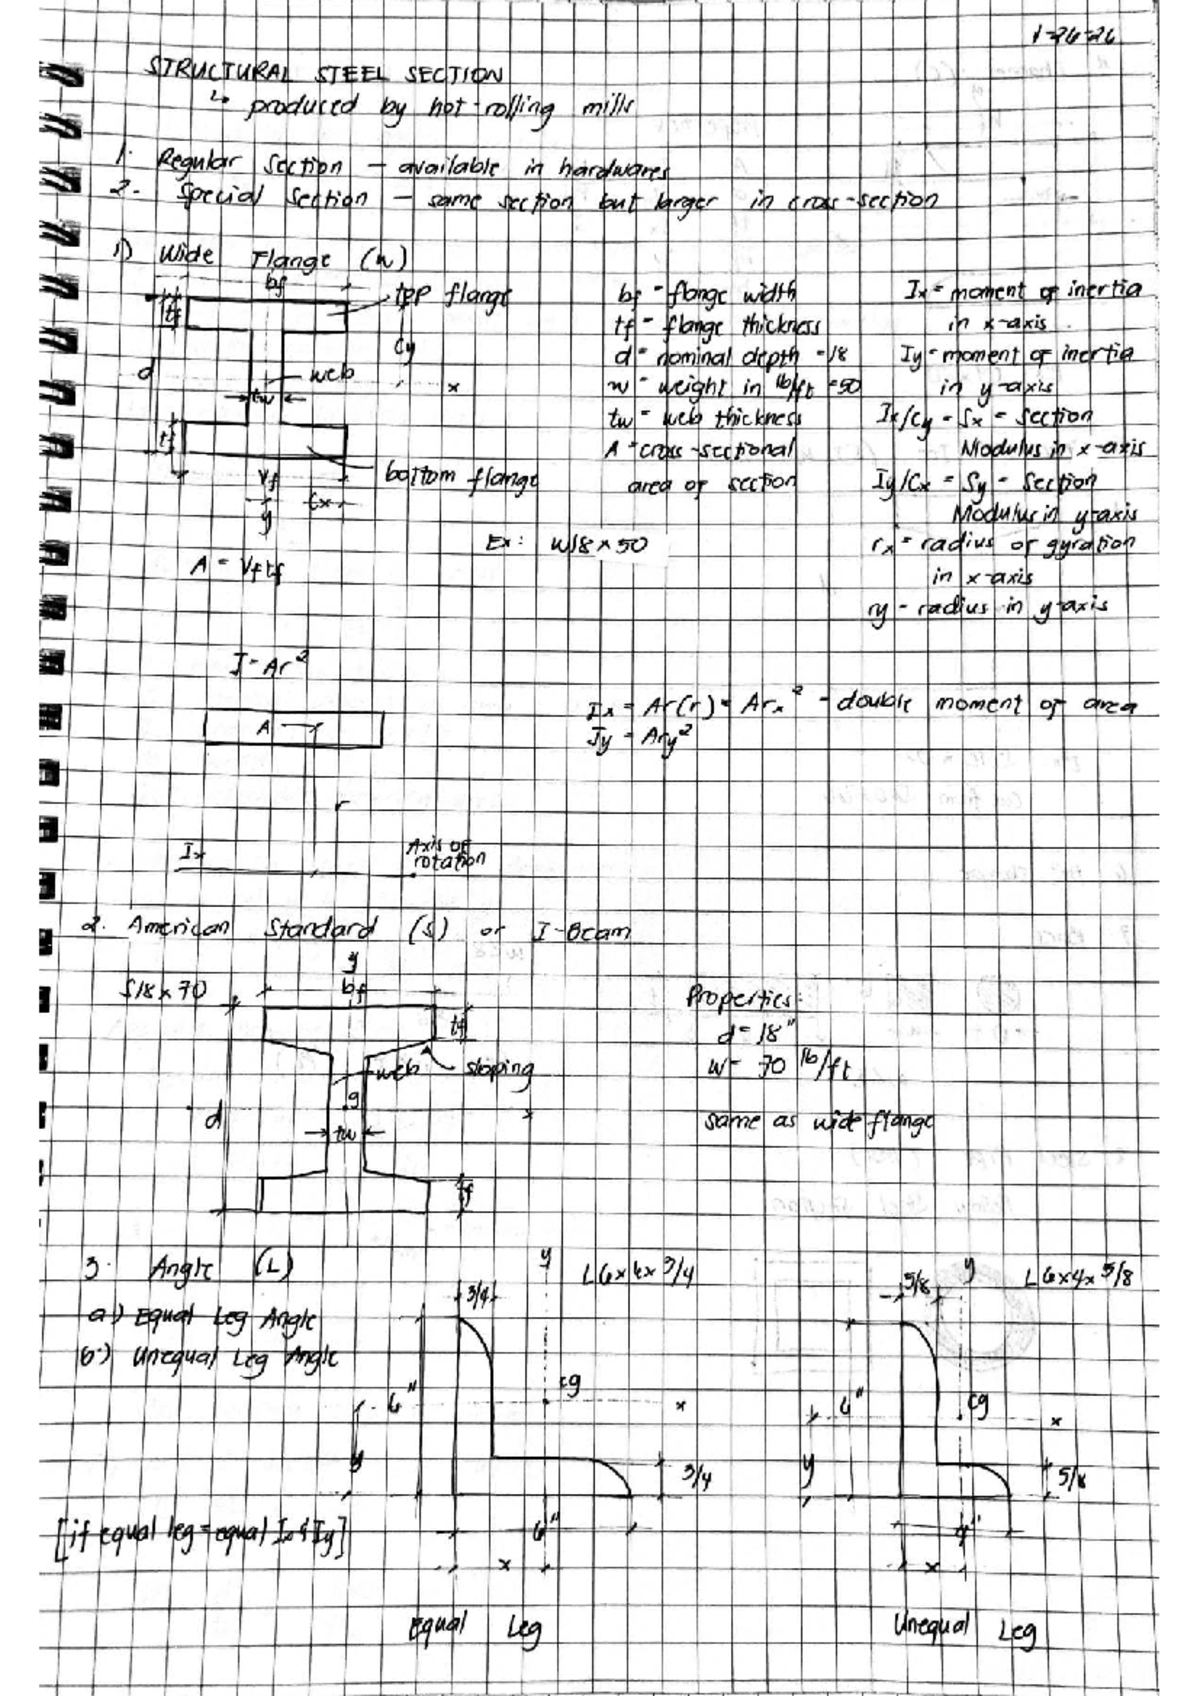 1-26-26
STRUCTURAL STEEL SECTION
↳ produced by hot-rolling mills
1. Regular Section - available in hardwares
2. Special Section - same section but larger in cross-section
1) Wide Flange (W)
bf
top flange
tf
cy
d
web
x
tw
tf
bottom flange
Vf
cx
y
A = Vftf
bf - flange width
tf - flange thickness
d - nominal depth = 18
w - weight in lb/ft = 50
tw - web thickness
A - cross-sectional
area of section
Ex: W18 x 50
Ix = moment of inertia
in x-axis
Iy - moment of inertia
in y-axis
Ix/Cy = Sx = Section
Modulus in x-axis
Iy/Cx = Sy - Section
Modulus in y-axis
rx = radius of gyration
in x-axis
ry - radius in y-axis
I = Ar²
A
r
Ix
Axis of
rotation
Ix = Ar(r) = Arx² - double moment of area
Iy = Ary²
2. American Standard (S) or I-Beam
S18 x 70
y
bf
tf
web
sloping
g
d
tw
x
tf
Properties:
d = 18"
w = 70 lb/ft
same as wide flange
3. Angle (L)
a.) Equal Leg Angle
b.) Unequal Leg Angle
[if equal leg = equal Ix & Iy]
y
L6x6x3/4
3/4
6"
cg
x
y
3/4
6"
x
Equal Leg
y
L6x4x5/8
5/8
6"
cg
x
y
5/8
4"
x
Unequal Leg